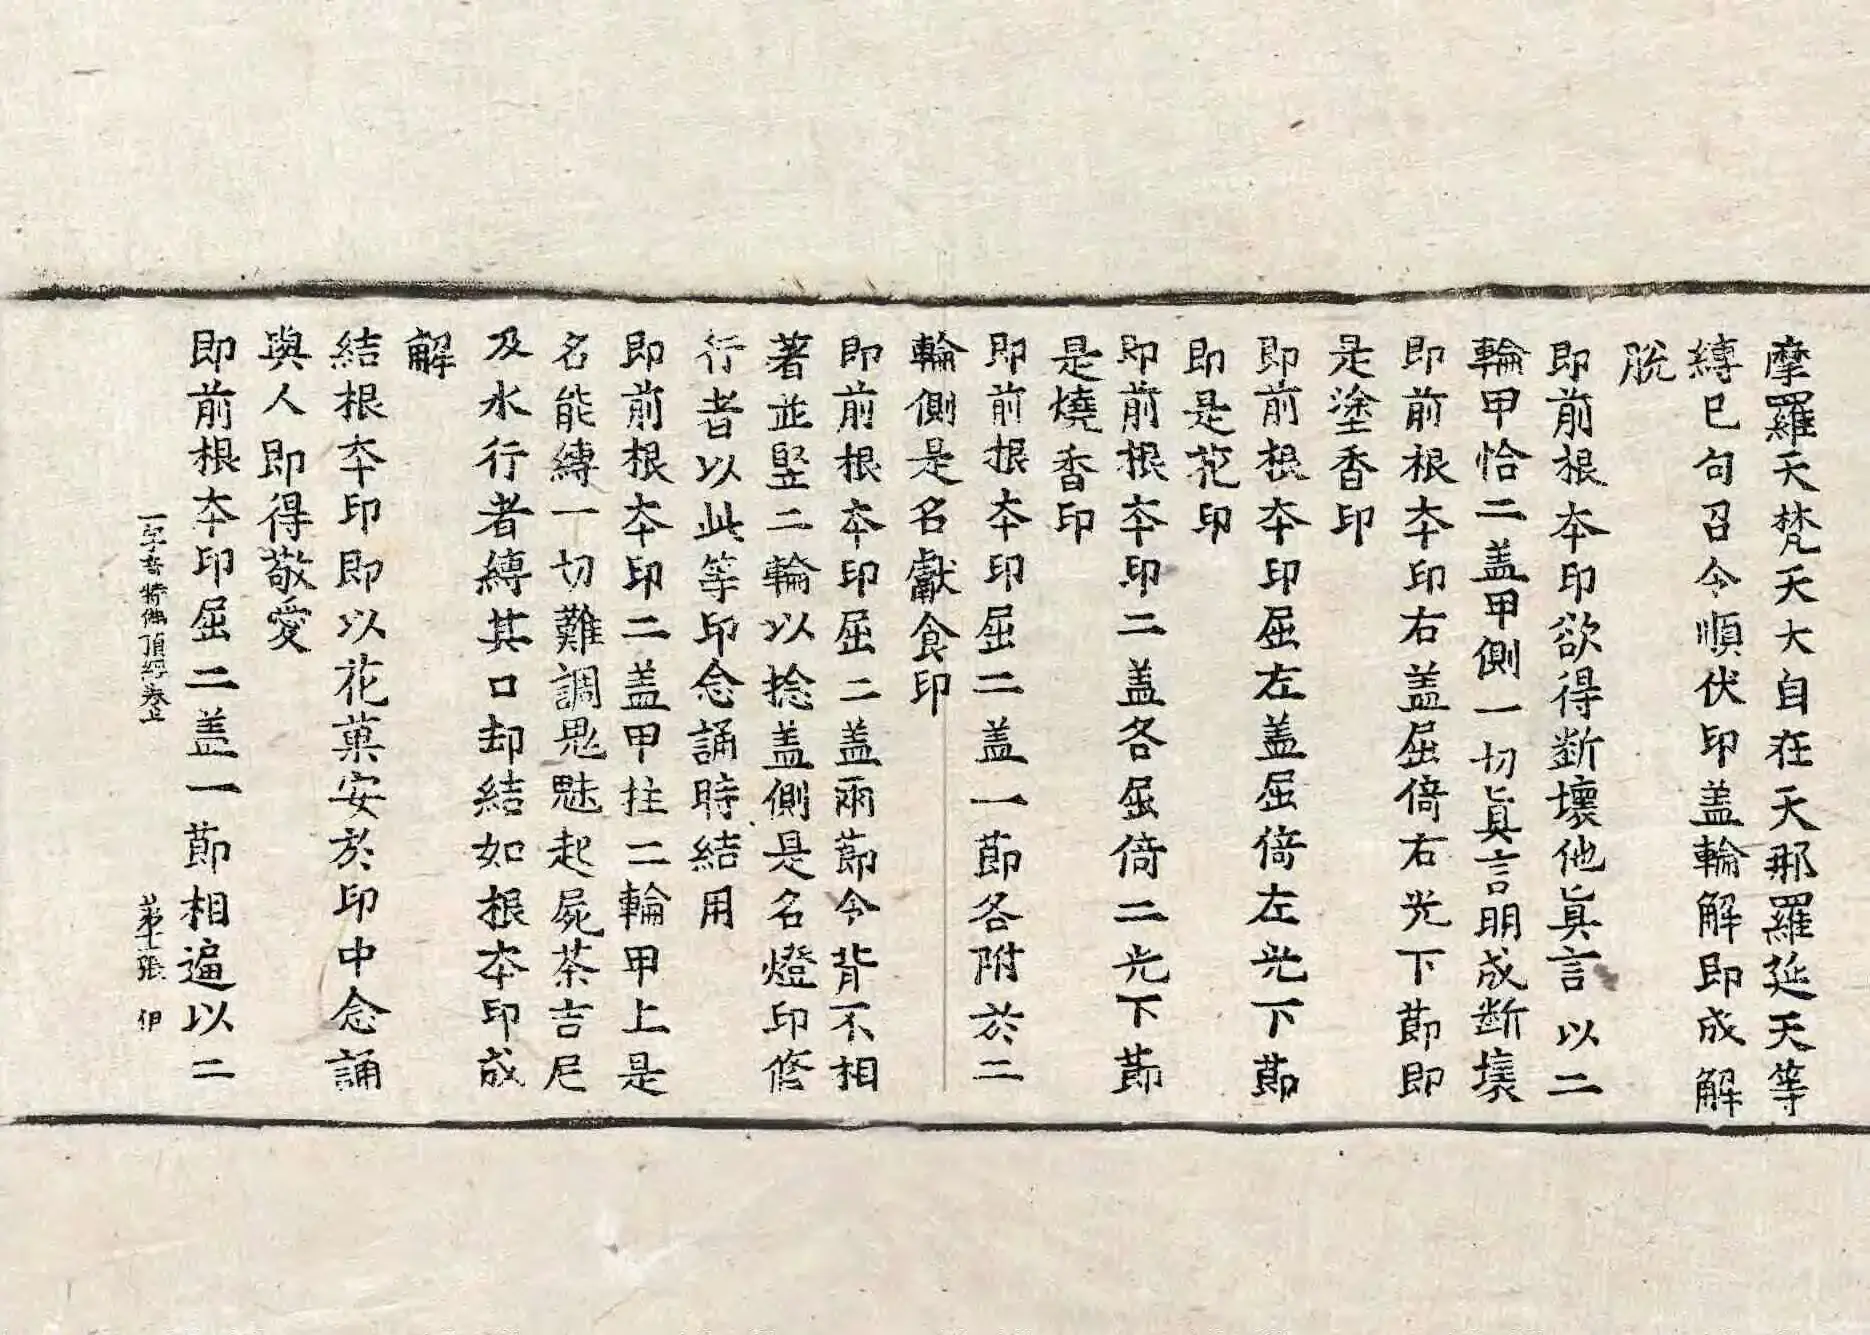 摩羅天梵天大自在天那羅延天等
縛已句召令順伏印盖輪解即成解
脫
即前根本印欲得断壞他真言以二
輪甲恰二盖甲側一切真言明成断壞
即前根本印右盖屈倚右光下莭即
是塗香印
即前根本印屈左盖屈倚左光下莭
即是花印
即前根本印二盖各屈倚二光下莭
是燒香印
即前根本印屈二盖一莭各附於二
輪側是名獻食印
即前根本印屈二盖兩莭令背不相
著並竪二輪以捻盖側是名燈印修
行者以此等印念誦時結用
即前根本印二盖甲拄二輪甲上是
名能縛一切難調鬼魅起屍茶吉尼
及水行者縛其口却結如根本印成
解
結根本印即以花菓安於印中念誦
與人即得敬愛
即前根本印屈二盖一莭相逼以二
一字奇特佛頂經卷上 第十張 伊